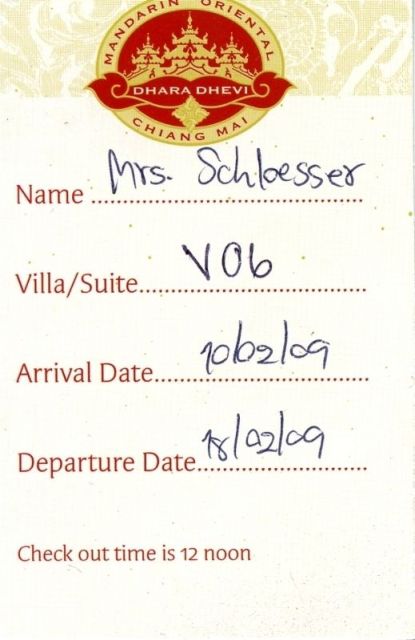 MANDARIN ORIENTAL
DHARA DHEVI
CHIANG MAI
Name Mrs. Schloesser
Villa/Suite V06
Arrival Date 10/02/09
Departure Date 18/02/09
Check out time is 12 noon